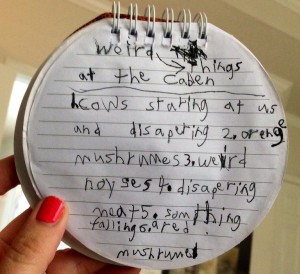 weird things
at the caben
1. cows staring at us
and disapering 2. orenge
mushrumes 3. weird
noyses 4. disapering
meat 5. somthing
falling 6. a red
mushrume